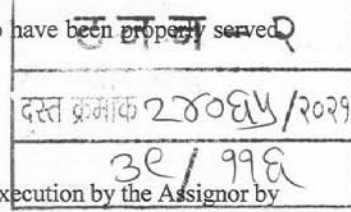 have been properly served
२
दस्त क्रमांक २४०६५/२०२१
३९/११६
xecution by the Assignor by